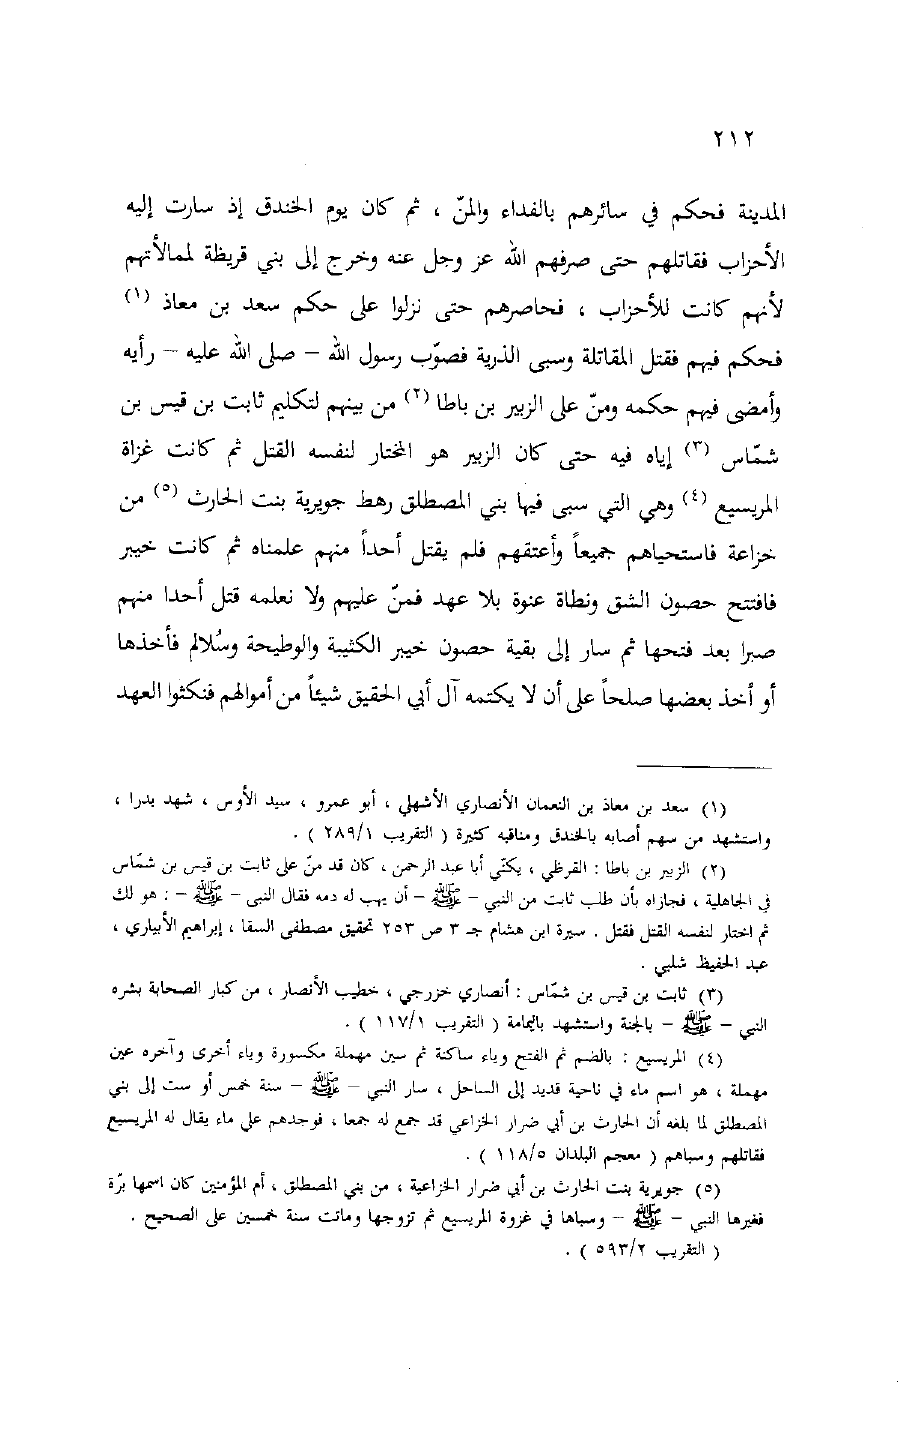 ٢١٢
المدينة فحكم في سائرهم بالفداء والمنّ ، ثم كان يوم الخندق إذ سارت إليه
الأحزاب فقاتلهم حتى صرفهم الله عز وجل عنه وخرج إلى بني قريظة لممالأتهم
لأنهم كانت للأحزاب ، فحاصرهم حتى نزلوا على حكم سعد بن معاذ (١)
فحكم فيهم فقتل المقاتلة وسبى الذرية فصوّب رسول الله – صلى الله عليه – رأيه
وأمضى فيهم حكمه ومنّ على الزبير بن باطا (٢) من بينهم لتكليم ثابت بن قيس بن
شمّاس (٣) إياه فيه حتى كان الزبير هو المختار لنفسه القتل ثم كانت غزاة
المريسيع (٤) وهي التي سبى فيها بني المصطلق رهط جويرية بنت الحارث (٥) من
خزاعة فاستحياهم جميعاً وأعتقهم فلم يقتل أحداً منهم علمناه ثم كانت خيبر
فافتتح حصون الشق ونطاة عنوة بلا عهد فمنّ عليهم ولا نعلمه قتل أحدا منهم
صبرا بعد فتحها ثم سار إلى بقية حصون خيبر الكثيبة والوطيحة وسُلالم فأخذها
أو أخذ بعضها صلحاً على أن لا يكتمه آل أبي الحقيق شيئاً من أموالهم فنكثوا العهد
(١) سعد بن معاذ بن النعمان الأنصاري الأشهلي ، أبو عمرو ، سيد الأوس ، شهد بدرا ،
واستشهد من سهم أصابه بالخندق ومناقبه كثيرة ( التقريب ٢٨٩/١ ) .
(٢) الزبير بن باطا : القرظي ، يكنّى أبا عبد الرحمن ، كان قد منّ على ثابت بن قيس بن شمّاس
في الجاهلية ، فجازاه بأن طلب ثابت من النبي – ﷺ – أن يهب له دمه فقال النبي – ﷺ – : هو لك
ثم اختار لنفسه القتل فقتل . سيرة ابن هشام جـ ٣ ص ٢٥٣ تحقيق مصطفى السقا ، إبراهيم الأبياري ،
عبد الحفيظ شلبي .
(٣) ثابت بن قيس بن شمّاس : أنصاري خزرجي ، خطيب الأنصار ، من كبار الصحابة بشره
النبي – ﷺ – بالجنة واستشهد باليمامة ( التقريب ١١٧/١ ) .
(٤) المريسيع : بالضم ثم الفتح وياء ساكنة ثم سين مهملة مكسورة وياء أخرى وآخره عين
مهملة ، هو اسم ماء في ناحية قديد إلى الساحل ، سار النبي – ﷺ – سنة خمس أو ست إلى بني
المصطلق لما بلغه أن الحارث بن أبي ضرار الخزاعي قد جمع له جمعا ، فوجدهم على ماء يقال له المريسيع
فقاتلهم وسباهم ( معجم البلدان ١١٨/٥ ) .
(٥) جويرية بنت الحارث بن أبي ضرار الخزاعية ، من بني المصطلق ، أم المؤمنين كان اسمها برّة
فغيرها النبي – ﷺ – وسباها في غزوة المريسيع ثم تزوجها وماتت سنة خمسين على الصحيح .
( التقريب ٥٩٣/٢ ) .